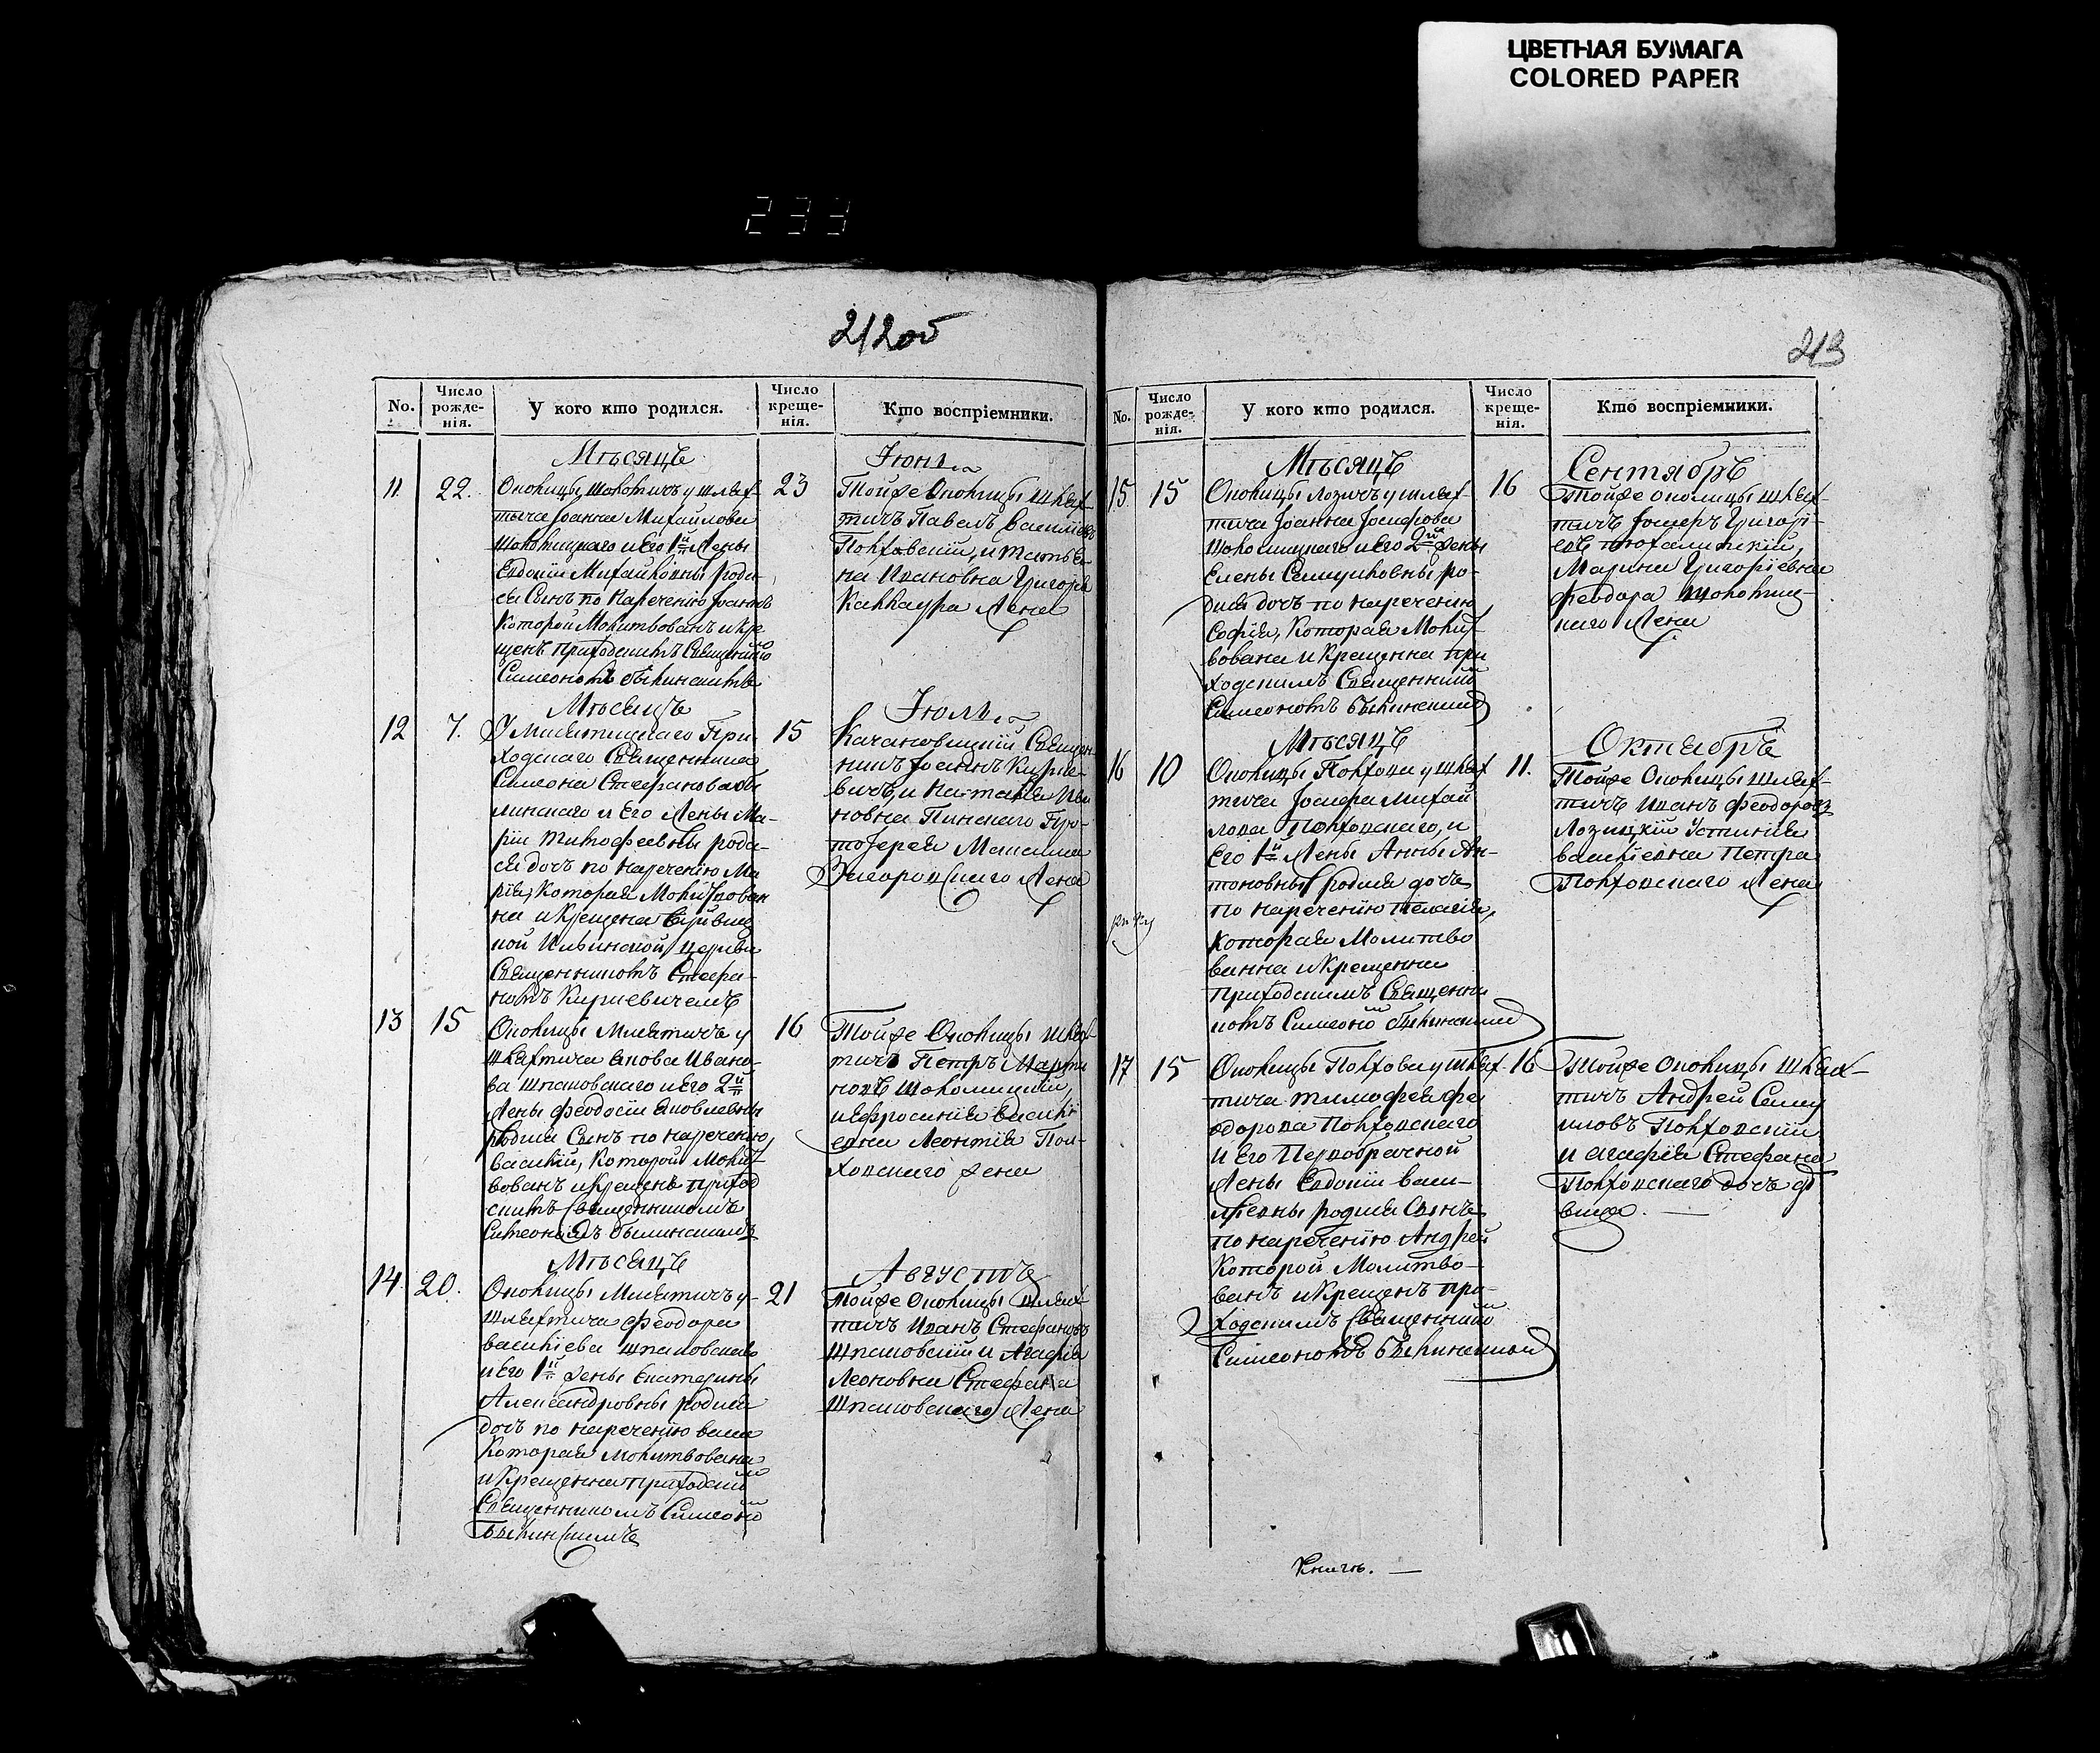 ЦВЕТНАЯ БУМАГА
COLORED PAPER
233
212 об
No. Число рожденія. У кого кто родился. Число крещенія. Кто воспріемники.
Мѣсяцъ Іюнь
11 22. 23
Околицы Шоломичъ у шлях-
тича Іоанна Михайлова
Шоломицкаго и Его 1й Жены
Евдокіи Михайловны роди-
ся Сынъ по Наречению Іоаннъ
Которой Молитвованъ и кре
щенъ приходскимъ Священнико
Симеономъ Былинскимъ
Тойже Околицы Шлях-
тичъ Павелъ Василіевъ
Полховскій, и
на Ивановна Григорія
Жена
Мѣсяцъ Іюль
12 7. 15
У Приходскаго Священника
Симеона Стефанова Бы
линскаго и Его Жены Ма-
ріи Тимофеевны роди-
ся дочь по Наречению Ма
рія, Которая Молитвован
на и Крещена
ной Ильинской церкви
Священникомъ Стефа-
номъ Киркевичемъ
Качановицкій Священ
никъ Іоаннъ Кирке-
вичъ, и Наталія Ива
новна Пинскаго Про-
тоіерея
Жена
13 15 16
Околицы Мялятичъ у
шляхтича Якова Ивано-
ва Шпаковскаго и Его 2й
Жены Феодосіи Яковлевны
родися Сынъ по наречению,
Василій, Которой Молит-
вованъ и Крещенъ приход
скимъ Священникомъ
Симеономъ Былинскимъ
Тойже Околицы Шлях-
тичъ Петръ Марти
новъ Шоломицкій,
и Ефросинія Василі
евна Леонтія Пол-
ховскаго жена
Мѣсяцъ Августъ
14 20. 21
Околицы Мялятичъ у
Шляхтича Феодора
Василіева Шпаковскаго
и Его 1й Жены Екатерины
Александровны родися
дочъ по наречению
Которая Молитвована
и Крещенна приходским
Священникомъ Симеоно
Былинскимъ
Тойже Околицы Шлях-
тичъ Иванъ Стефановъ
Шпаковскій и Агафія
Леоновна Стефана
Шпаковскаго Жена
213
No. Число рожденія. У кого кто родился. Число крещенія. Кто воспріемники.
Мѣсяцъ Сентябръ
15 15 16
Околицы Лозичъ у шлях-
тича Іоанна Іосифова
Шоломицкаго и Его 2й жены
Елены Самуиловны ро-
дися дочъ по наречению
Софія, Которая Молит-
вована и Крещенна при
ходскимъ Священник
Симеономъ Былинским
Тойже околицы Шлях-
тичъ Григорі-
евъ
Марина Григоріевна
Феодора Шоломиц-
каго Жена
Мѣсяцъ Октябръ
16 10 11.
Околицы Полхова у шлях
тича Іосифа Михай
лова Полховскаго, и
Его 1й Жены Анны Ан-
тоновны родися дочъ
по наречению Пелагія,
Которая Молитво
ванна и Крещенна
приходскимъ Священни
комъ Симеоно Былинским
Тойже Околицы Шлях-
тичъ Иванъ Феодоровъ
Лозицкій Устинія
Василіевна Петра
Полховскаго Жена
17 15 16
Околицы Полхова у шлях-
тича Тимофея Фе
одорова Полховскаго
и Его Первобрачной
Жены Евдокіи Васи-
ліевны родися Сынъ
по наречению Андрей
Которой Молитво-
ванъ и Крещенъ при-
ходскимъ Священнико
Симеономъ Былинским
Тойже Околицы Шлях-
тичъ Андрей Саму
иловъ Полховскій
и Агафія Стефана
Полховскаго дочъ дѣ
вица. —